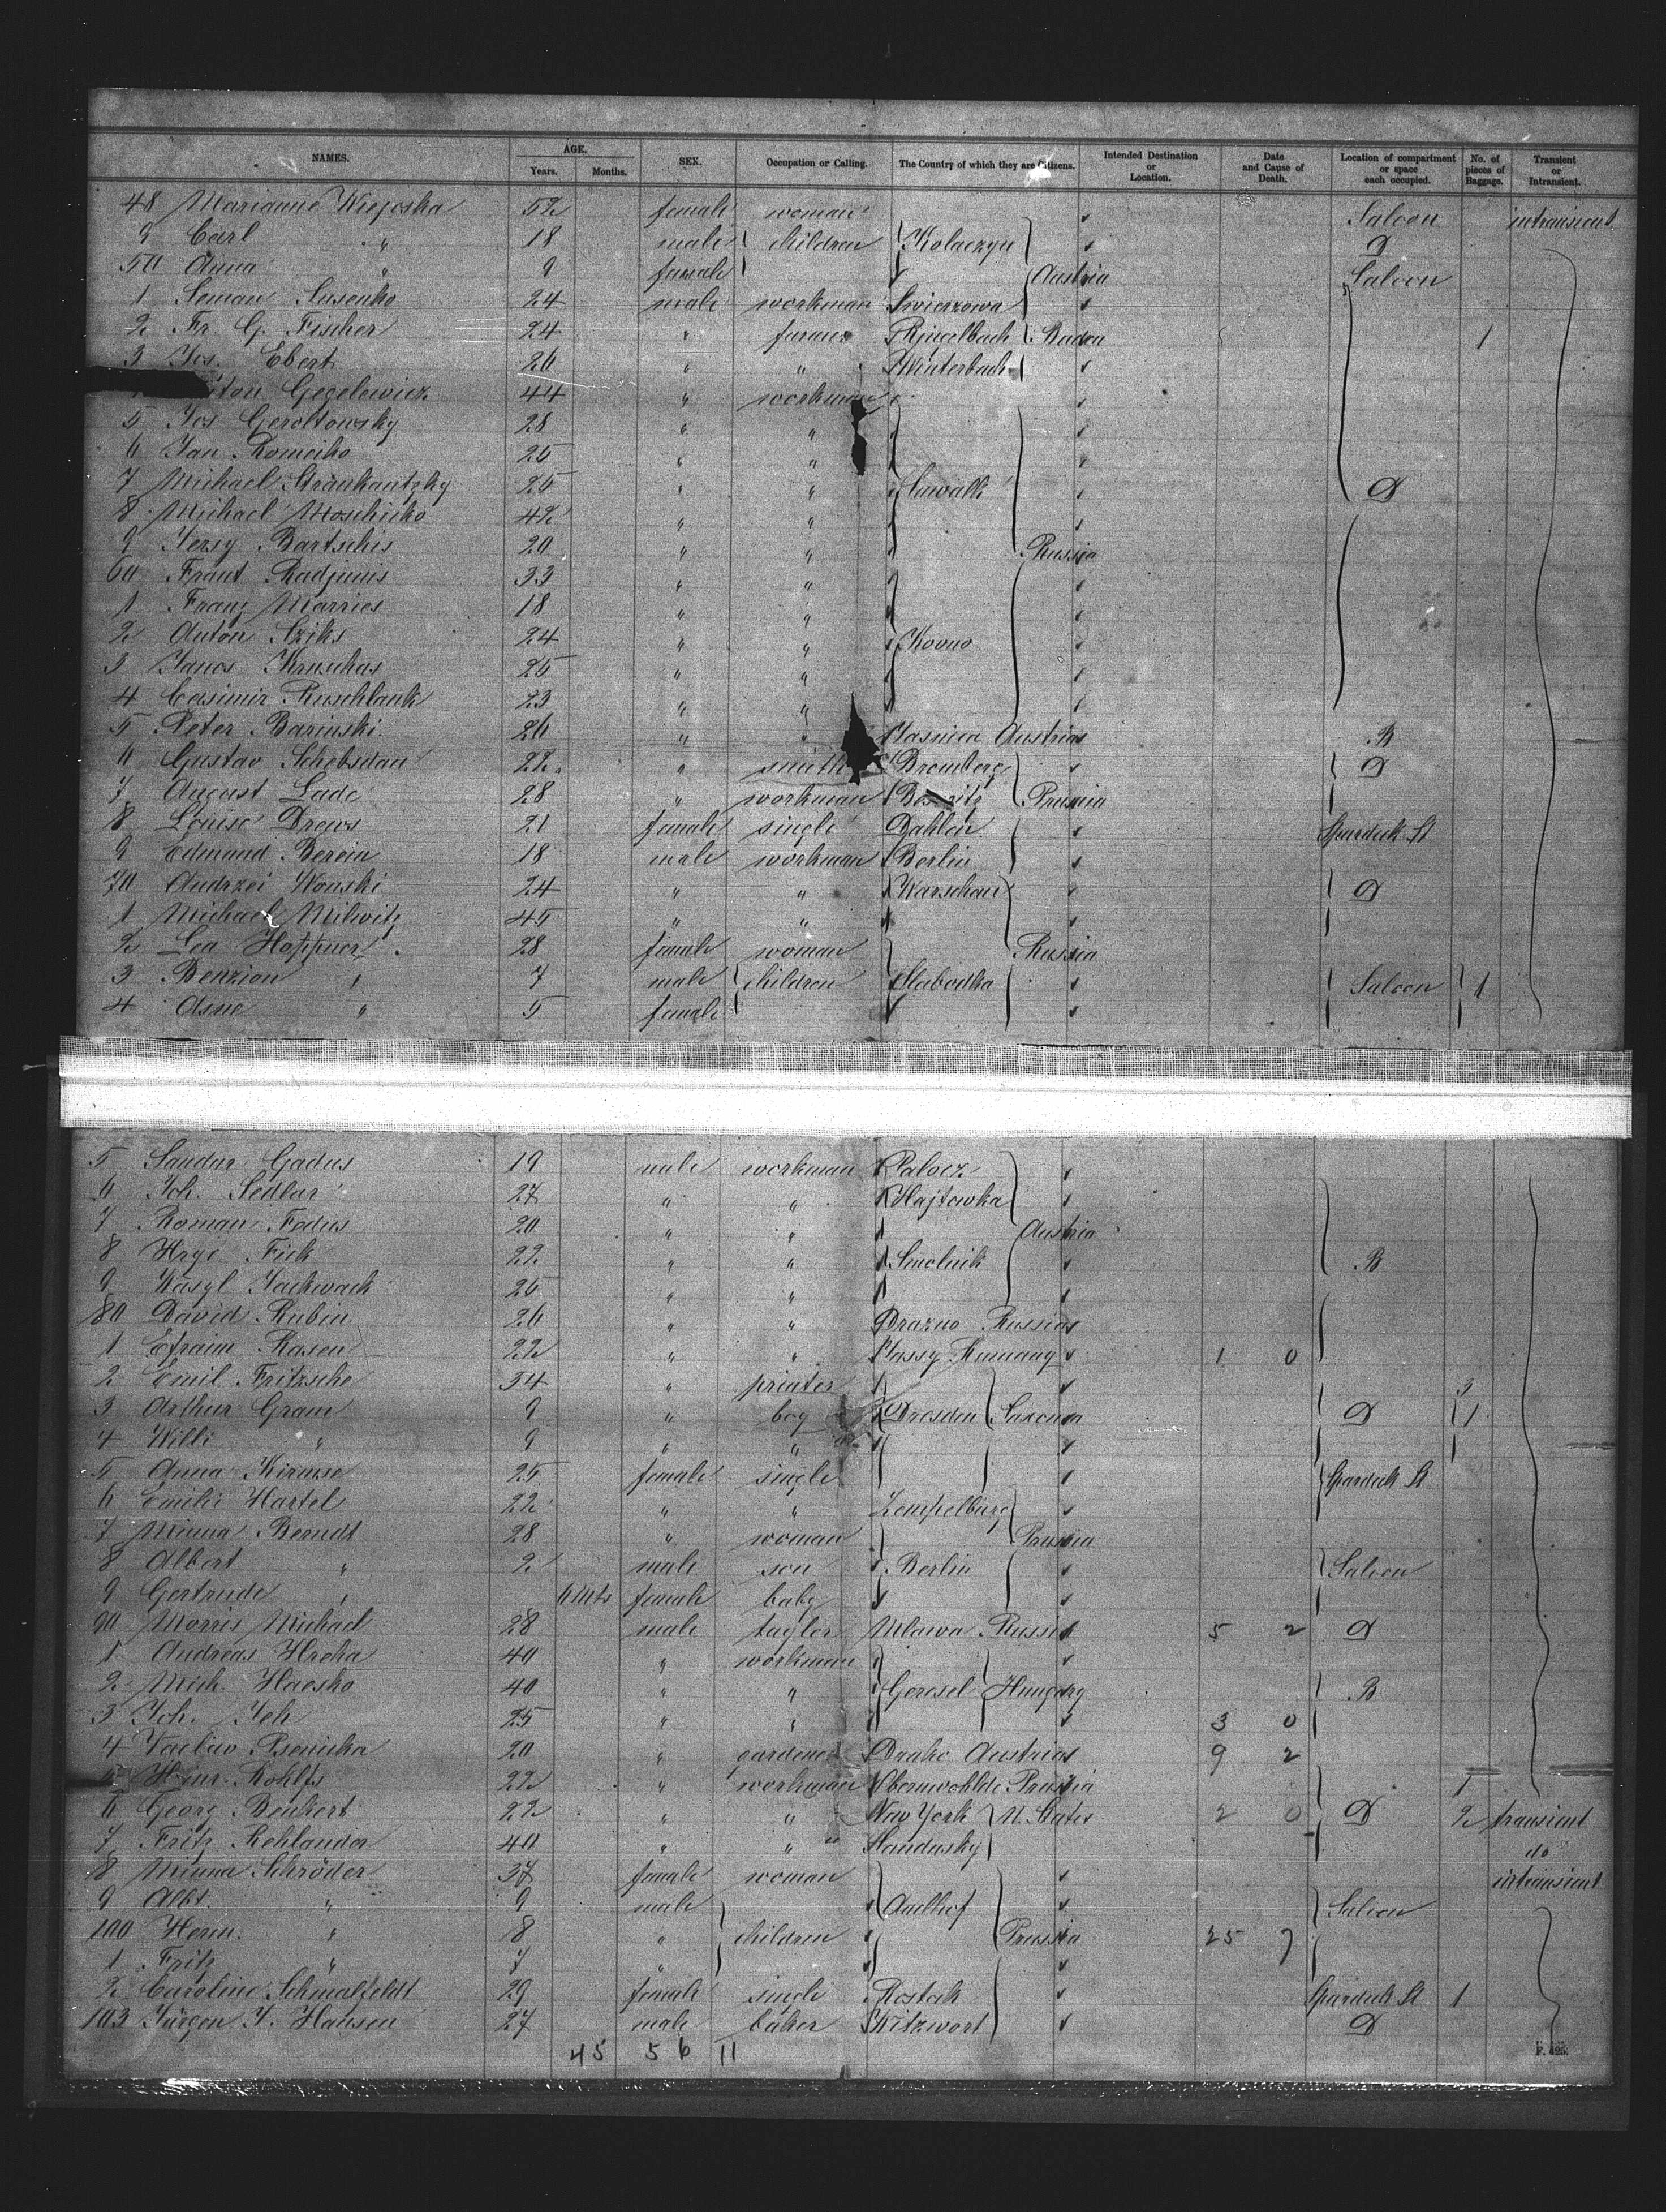 NAMES. AGE. Years. Months. SEX. Occupation or Calling. The Country of which they are Citizens. Intended Destination or Location. Date and Cause of Death. Location of compartment or space each occupied. No. of pieces of Baggage. Transient or Intransient.
48 Marianne 52 female woman Saloon intransient
9 Carl " 18 male children Kolaczyn D
50 Anna " 9 female Austria Saloon
1 Seman Susenko 24 male workman Swierzowa
2 Fr. G. Fischer 24 " farmer Ringelbach Baden 1
3 Jos. Ebert 26 " " Winterbach
Gegelewicz 44 " workman
5 Jos Geroltowsky 28 " "
6 Jan Romeiko 25 " "
7 Michael 25 " " Suwalki D
8 Michael Moschicko 42 " "
9 Jersy Bartschis 20 " " Russia
60 Franz Radjunis 33 " "
1 Franz Marries 18 " "
2 Anton Sziks 24 " " Kovno
3 Janos Kruschas 25 " "
4 Casimir Ruschlauk 23 " "
5 Peter Barinski 26 " " Jasnica Austria B
6 Gustav Schebsdau 22 " smith Bromberg D
7 August Lade 28 " workman Prussia
8 Louise Drews 21 female single Dahlen Spardeck St
9 Edmund Berein 18 male workman Berlin
70 Andrzei Wonski 24 " " Warschau D
1 Michael Milwitz 45 " "
2 Lea Hoppner 28 female woman Russia
3 Benzion " 7 male children Slabodka Saloon 1
4 Asne " 5 female
5 Sandor Gadus 19 male workman Palocz
6 Joh. Sedlar 27 " " Hajtowka
7 Roman Fedus 20 " " Austria
8 Hryc Fick 22 " " Smolnik B
9 Wasyl Jackwack 25 " "
80 David Rubin 26 " " Brazno Russia
1 Efraim Rasen 22 " " Jassy Rumany 1 0
2 Emil Fritzsche 34 " printer 3
3 Arthur Gram 9 " boy Dresden Saxonia D 1
4 Willi " 9 " "
5 Anna Kirmse 25 female single Spardeck St
6 Emilie Hartel 22 " " Zempelburg
7 Minna Berndt 28 " woman Prussia
8 Albert " 2 male son Berlin Saloon
9 Gertrude " 6 Mts female baby
90 Morris Michael 28 male taylor Mlawa Russia 5 2 D
1 Andreas Hreha 40 " workman
2 Mich. Haesko 40 " " Geresel Hungary B
3 Joh. Jeh 25 " " 3 0
4 Vaclav Psenicka 20 " gardener Drahc Austria 9 2
5 Heinr. Rohlfs 22 " workman Obernwohlde Prussia 1
6 Georg Benkert 22 " " New York U. States 2 0 D 2 transient
7 Fritz Rehlander 40 " " Sandusky do
8 Minna Schröder 37 female woman intransient
9 Albt. " 9 male Aadhof Saloon
100 Herm. " 8 " children Prussia 25 7
1 Fritz " 7 "
2 Caroline Schmalfeldt 29 female single Rostock Spardeck St 1
103 Jürgen J. Hansen 27 male baker Witzwort D
45 56 11
F. 425.